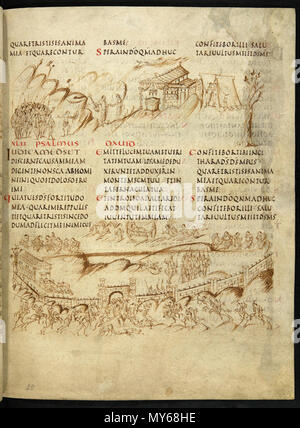 QUARETRISTISESANIMA
MEAETQUARECONTUR
BASME:
SPERAINDOQMADHUC
CONFITEBORILLISALU
TAREUULTUSMEIETDSMS
XLII PSALMUS DAUID
IUDICAMEDSET
DISCERNECAUSAMMEAM
DEGENTENONSCAABHOMI
NEINIQUOETDOLOSOERU
EME
QUIATUESDSFORTITUDO
MEAQUAREMEREPPULIS
TIETQUARETRISTISINCEDO
DUMADFLIGITMEINIMICUS
EMITTELUCEMTUAMETUERI
TATEMTUAMIPSAMEDEDU
XERUNTETADDUXERUNTIN
MONTEMSCMTUUMETIN
TABERNACULATUA
ETINTROIBOADALTAREDI
ADDMQUILAETIFICAT
IUUENTUTEMMEAM
CONFITEBORTIBIINCI
THARADSDSMEUS
QUARETRISTISESANIMA
MEAETQUARECONTUR
BASME
SPERAINDOQMADHUC
CONFITEBORILLISALU
TAREUULTUSMEIETDSMS
alamy
MY68HE